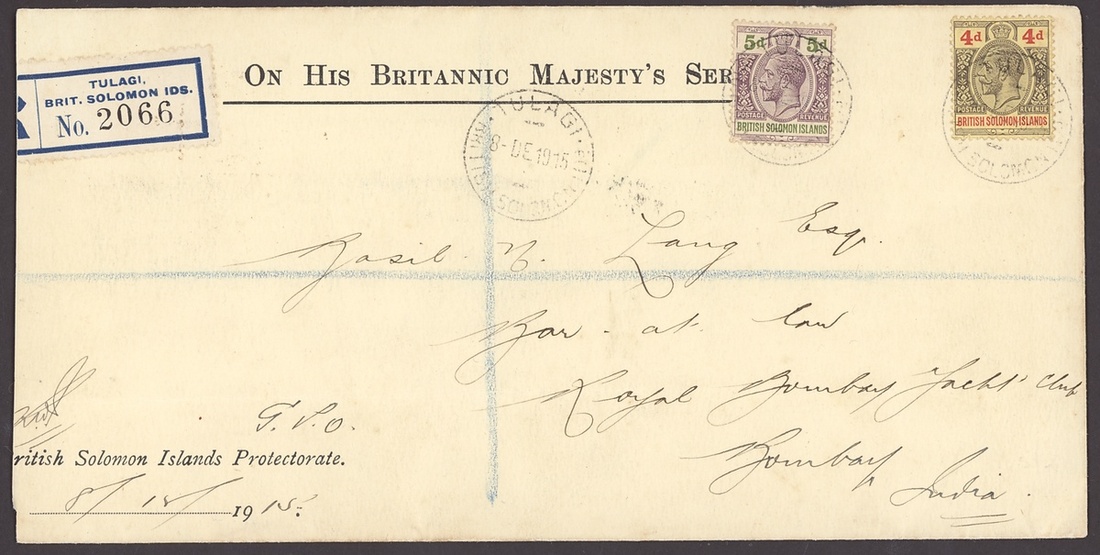 TULAGI,
BRIT. SOLOMON IDS.
R No. 2066
ON HIS BRITANNIC MAJESTY'S SER
5d 5d
POSTAGE REVENUE
BRITISH SOLOMON ISLANDS
4d 4d
POSTAGE REVENUE
BRITISH SOLOMON ISLANDS
TULAGI
8-DE 1915
SOLOMON
Basil N. Lang Esq.
Bar-at law
Royal Bombay Yacht Club
Bombay
India
G.P.O.
ritish Solomon Islands Protectorate.
8/12/1915.